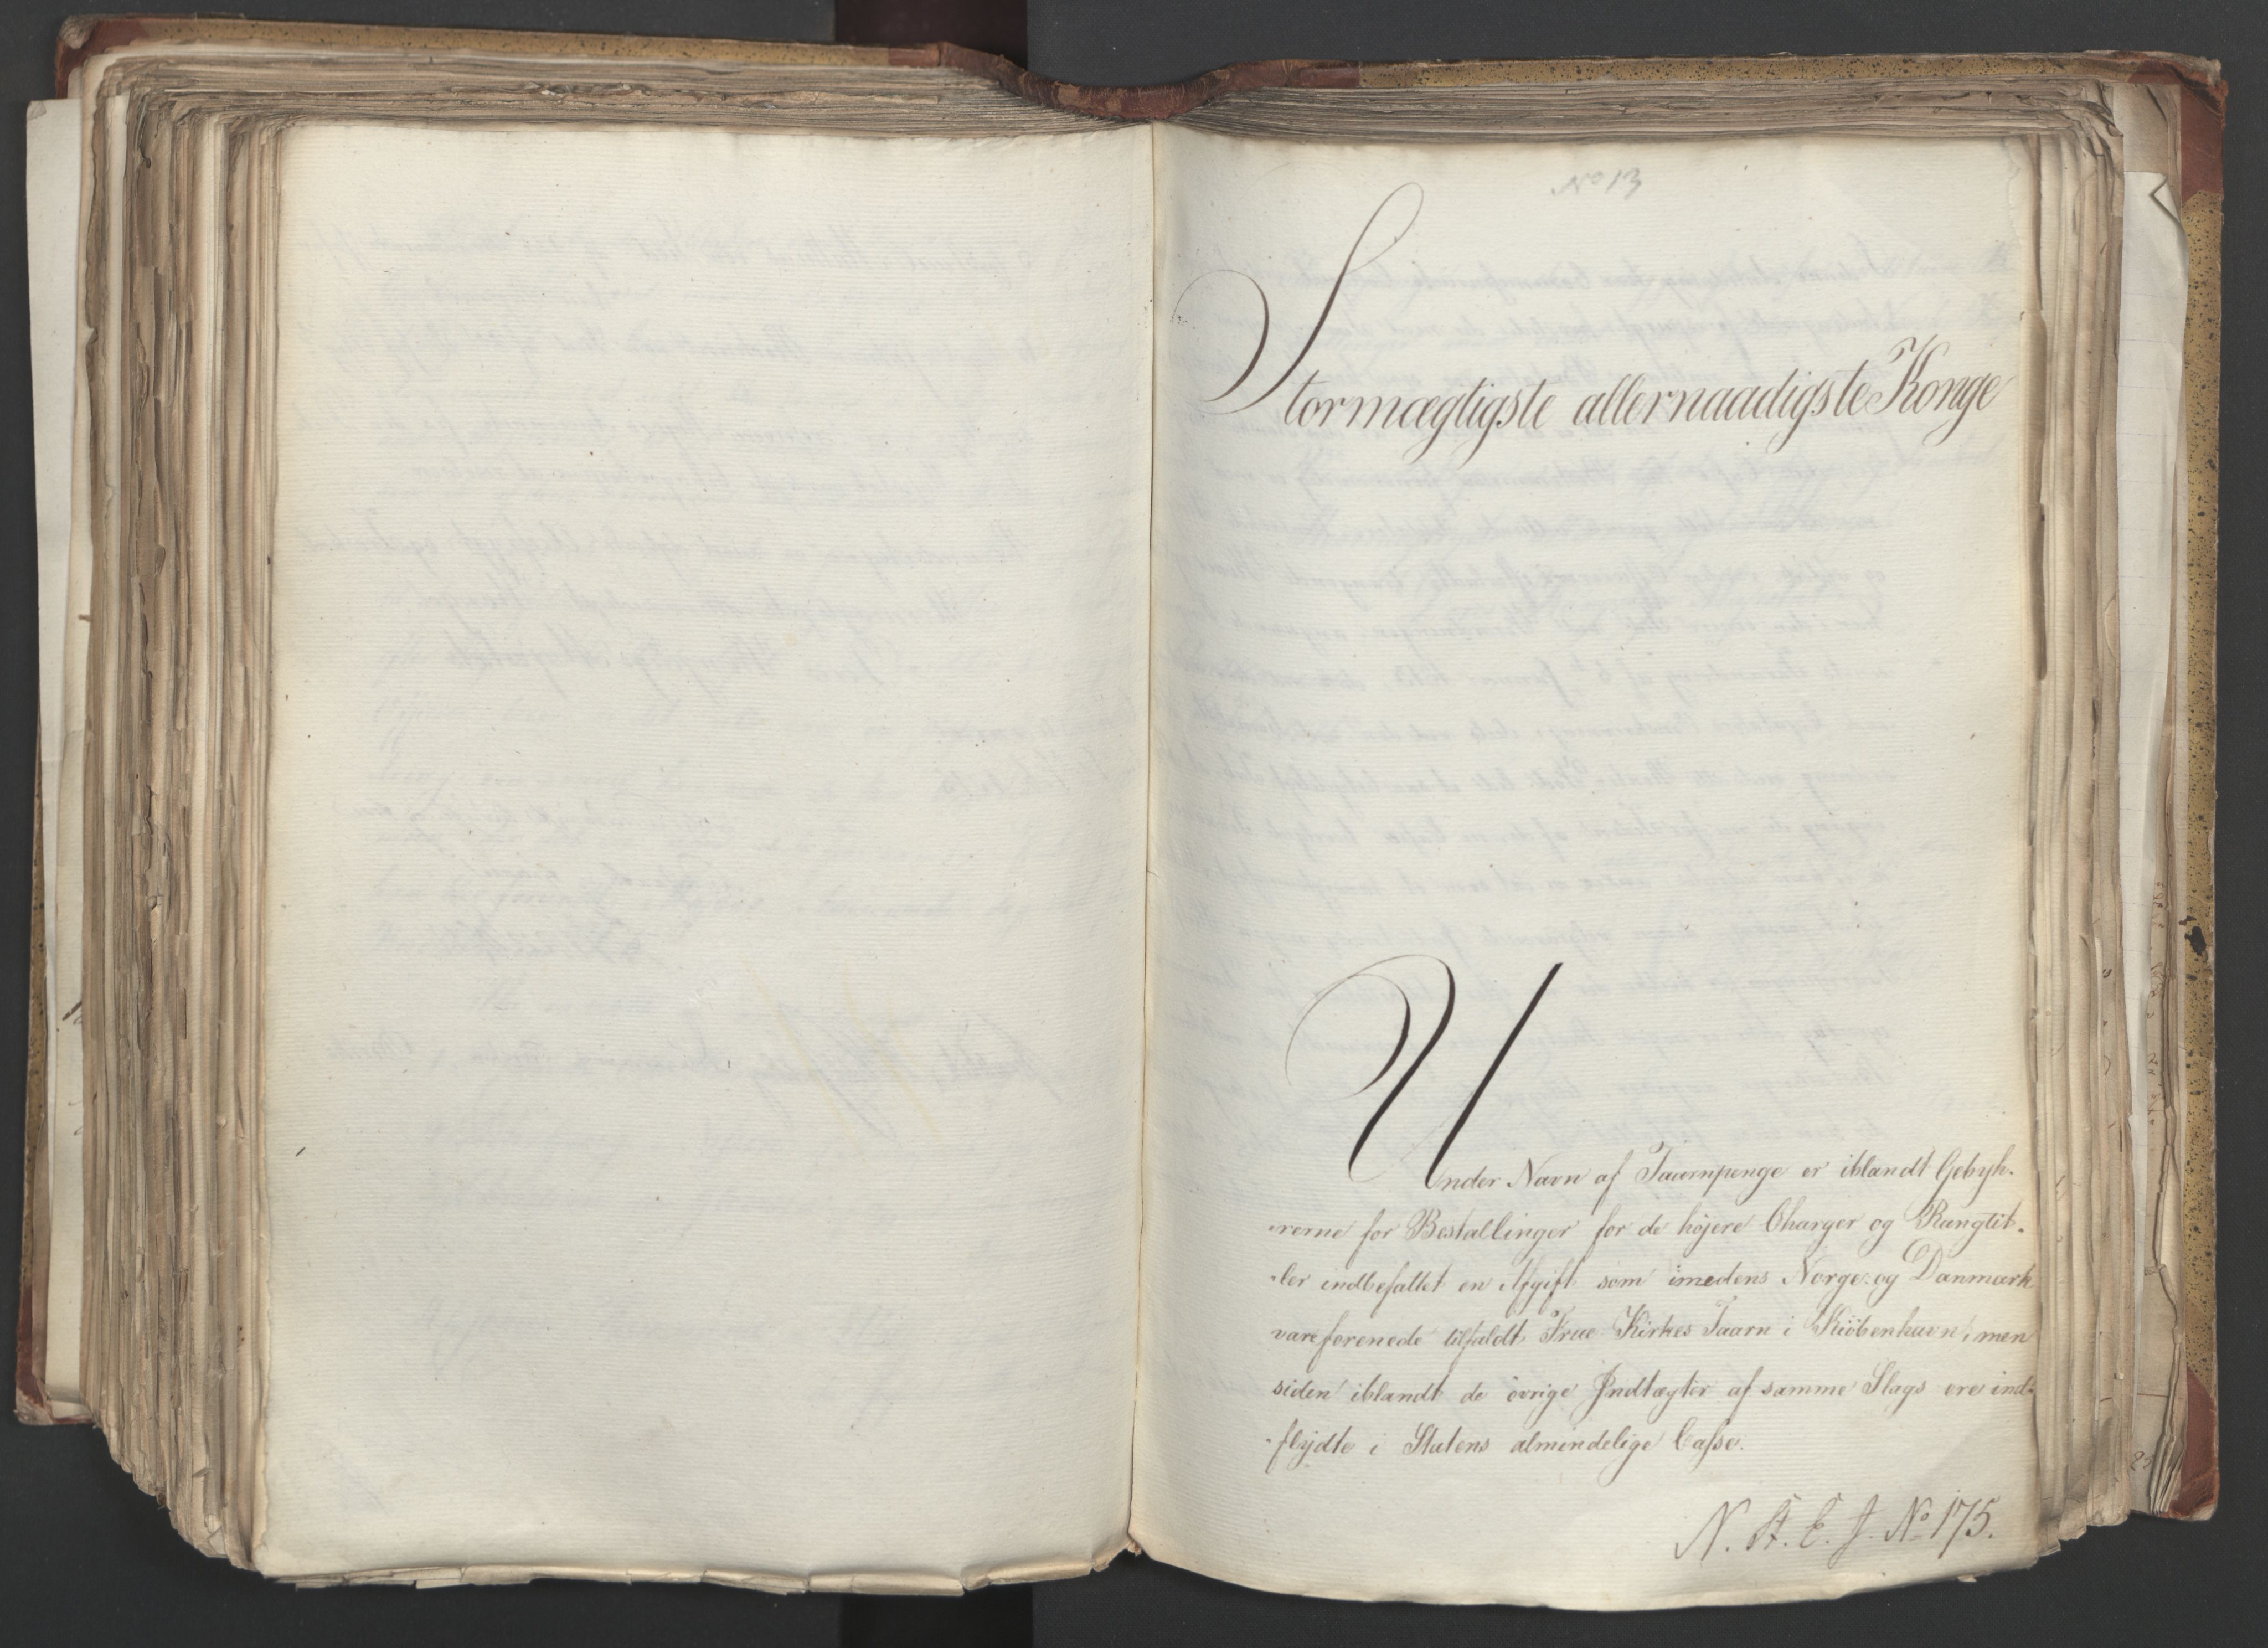 No 13
Stormægtigste allernaadigste Konge
Under Navn af Taarnpenge er iblandt Gebyh-
-rerne for Bestallinger for de højere Charger og Rangtit-
-ler indbefattet en Afgift som imedens Norge og Danmark
vare forenede tilfaldt Frue Kirkes Taarn i Kiöbenhavn, men
siden iblandt de övrige Indtægter af samme Slags ere ind-
-flydte i Statens almindelige Casse.
N. St. E. J. No 175.